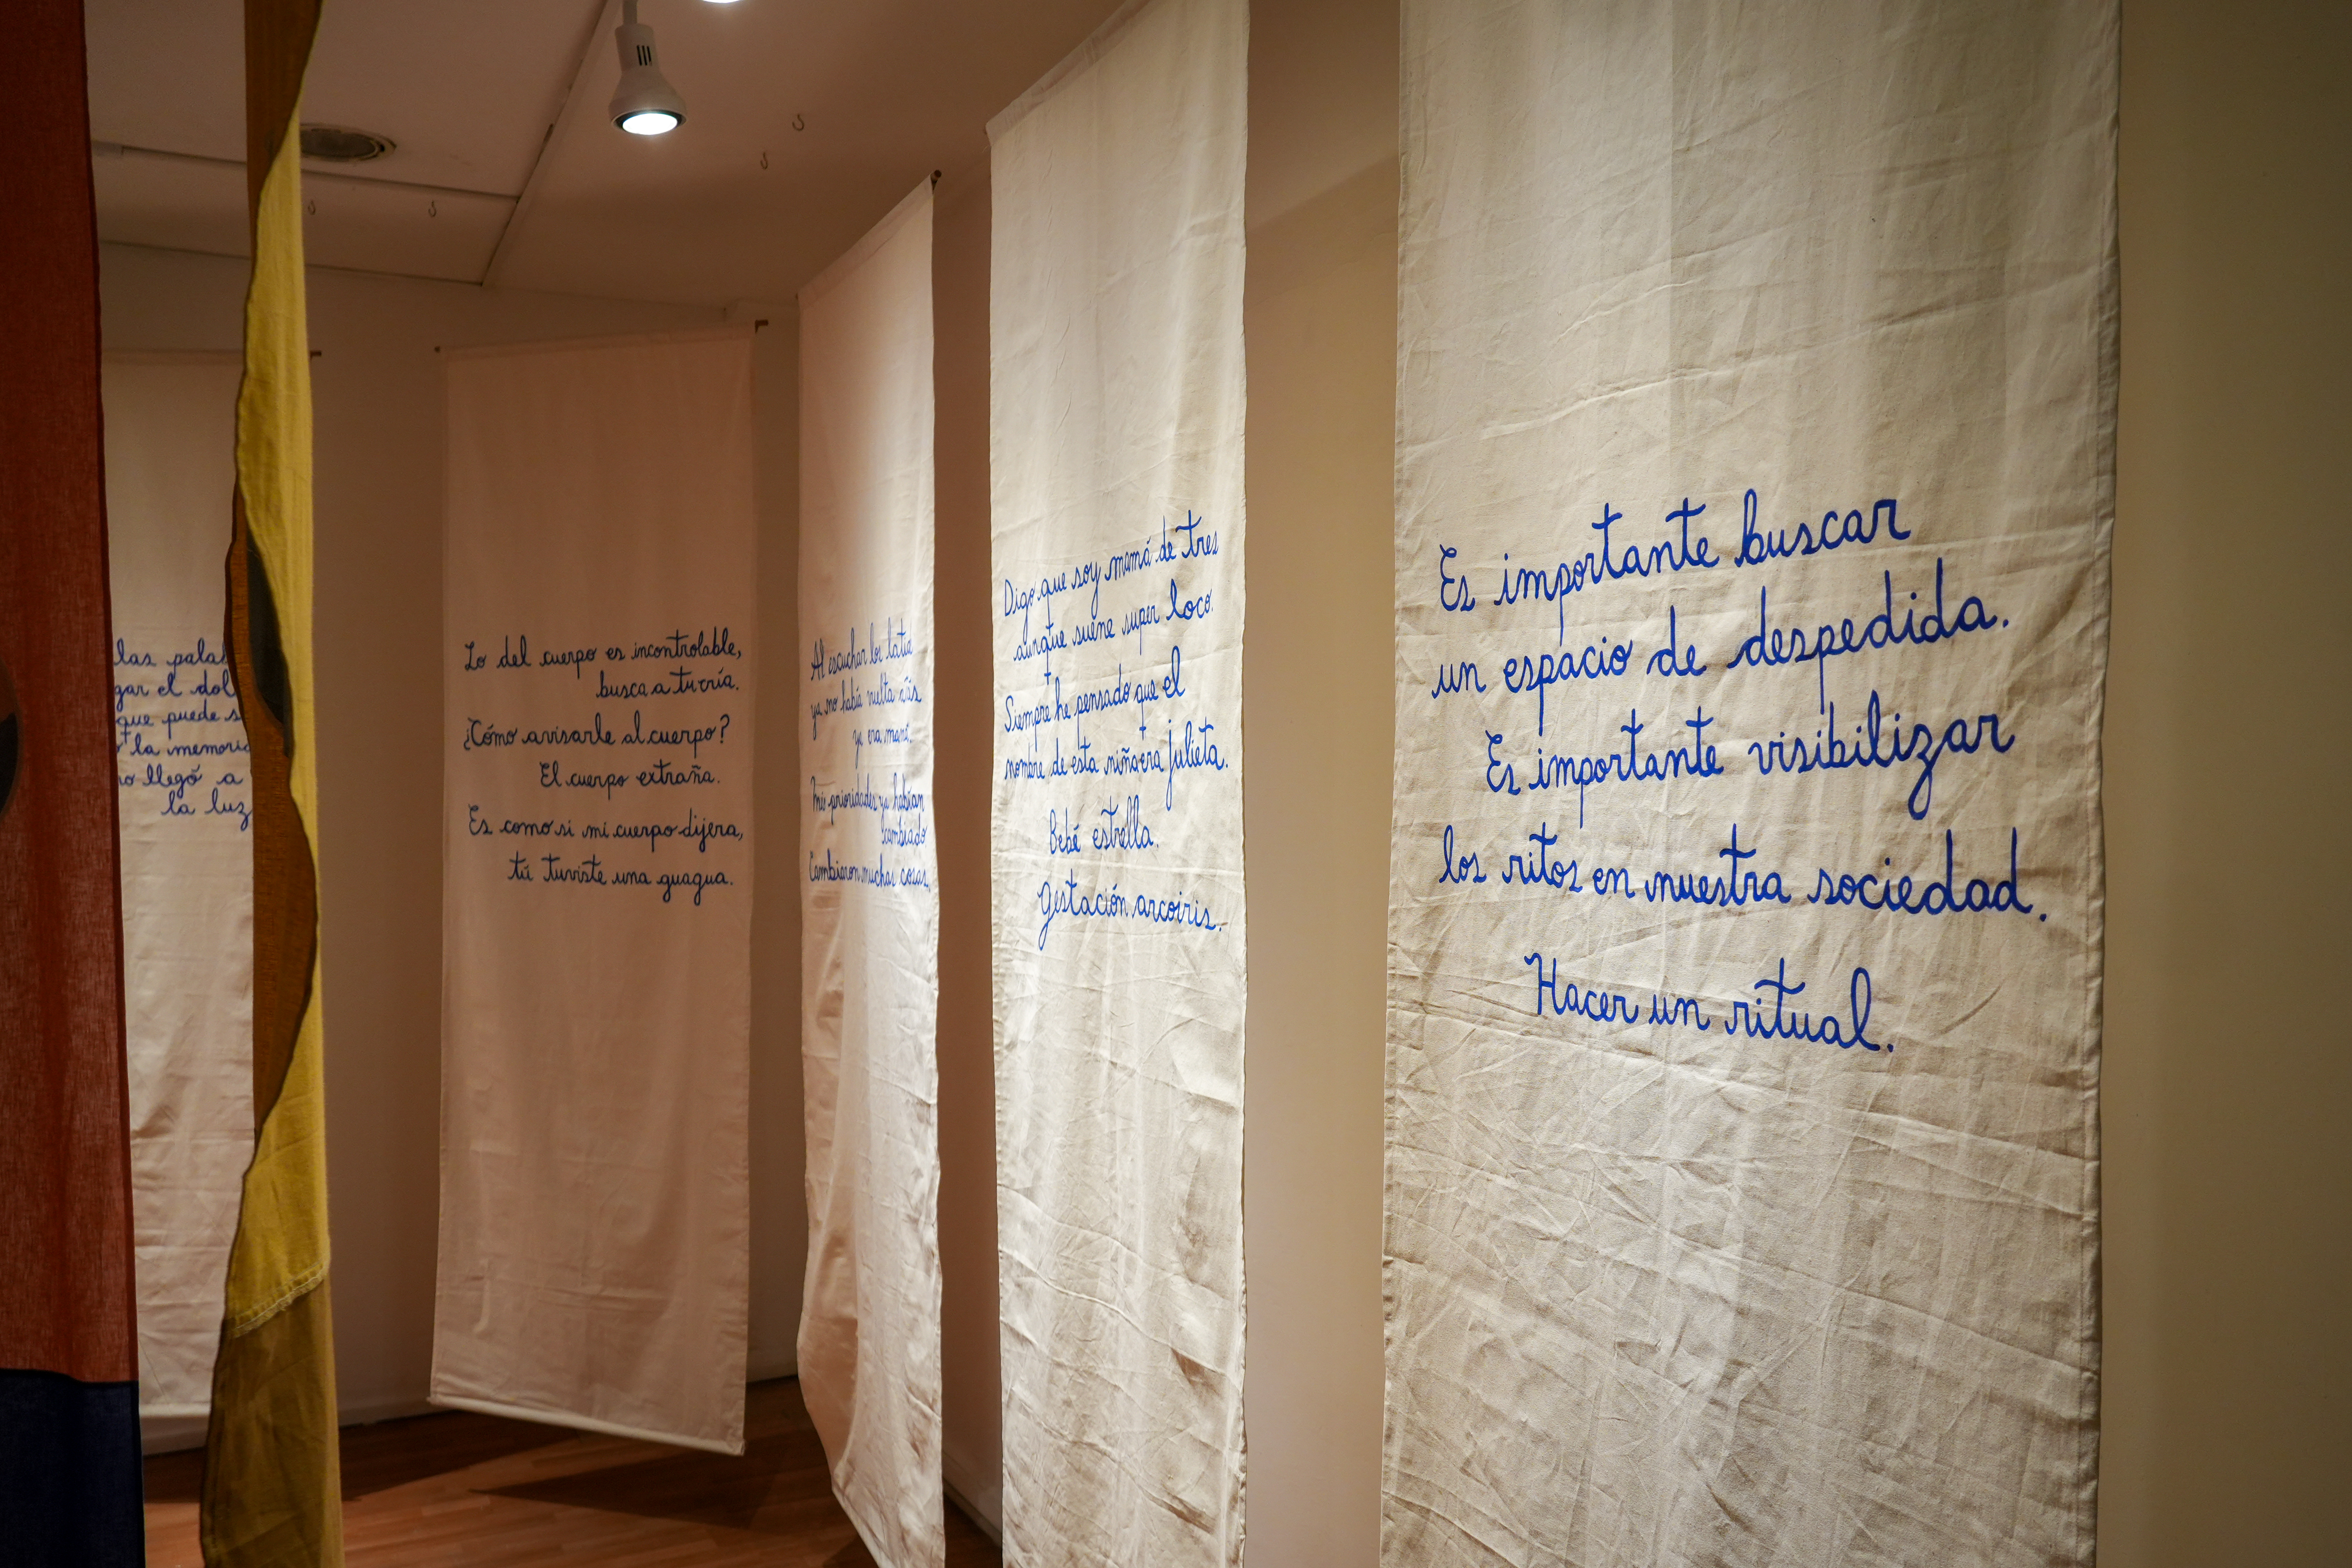 las
gar el
que puede
la memoria
no llegó a
la luz
Lo del cuerpo es incontrolable,
busca a tu cría.
¿Cómo avisarle al cuerpo?
El cuerpo extraña.
Es como si mi cuerpo dijera,
tú tuviste una guagua.
Al escuchar los latir
ya no había vuelta atrás
ya era mamá.
Mis prioridades ya habían
cambiado
Cambiaron muchas cosas.
Digo que soy mamá de tres
aunque suene super loco.
Siempre he pensado que el
nombre de esta niña era Julieta.
Bebé estrella.
Gestación arcoiris.
Es importante buscar
un espacio de despedida.
Es importante visibilizar
los ritos en nuestra sociedad.
Hacer un ritual.